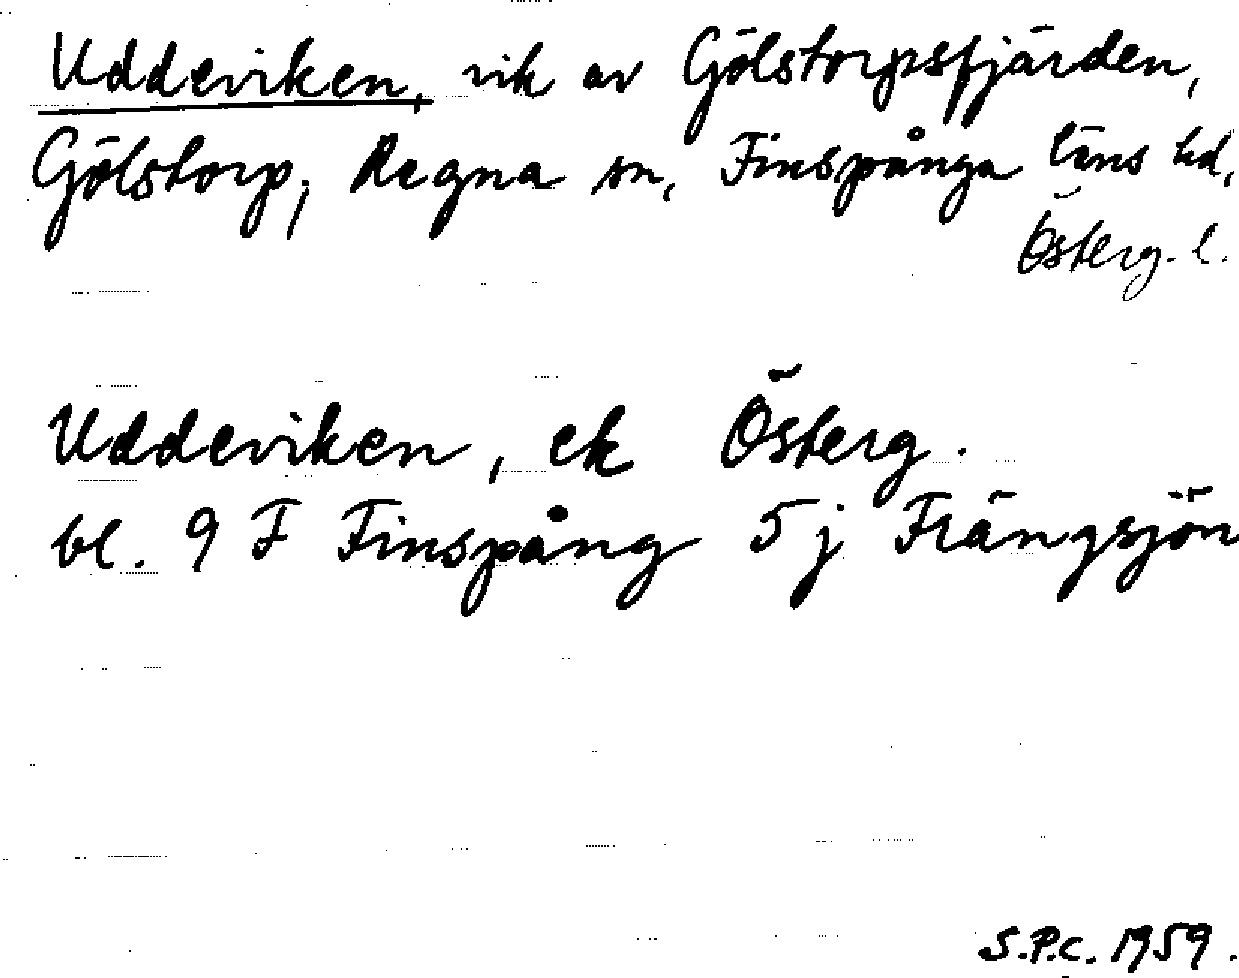 Uddeviken, vik av Gölstorpsfjärden,
Gölstorp, Regna sn, Finspånga läns hd,
Österg. l.
Uddeviken, ek Österg.
bl. 9 F Finspång 5 j Frängsjön
S.P.C. 1959.